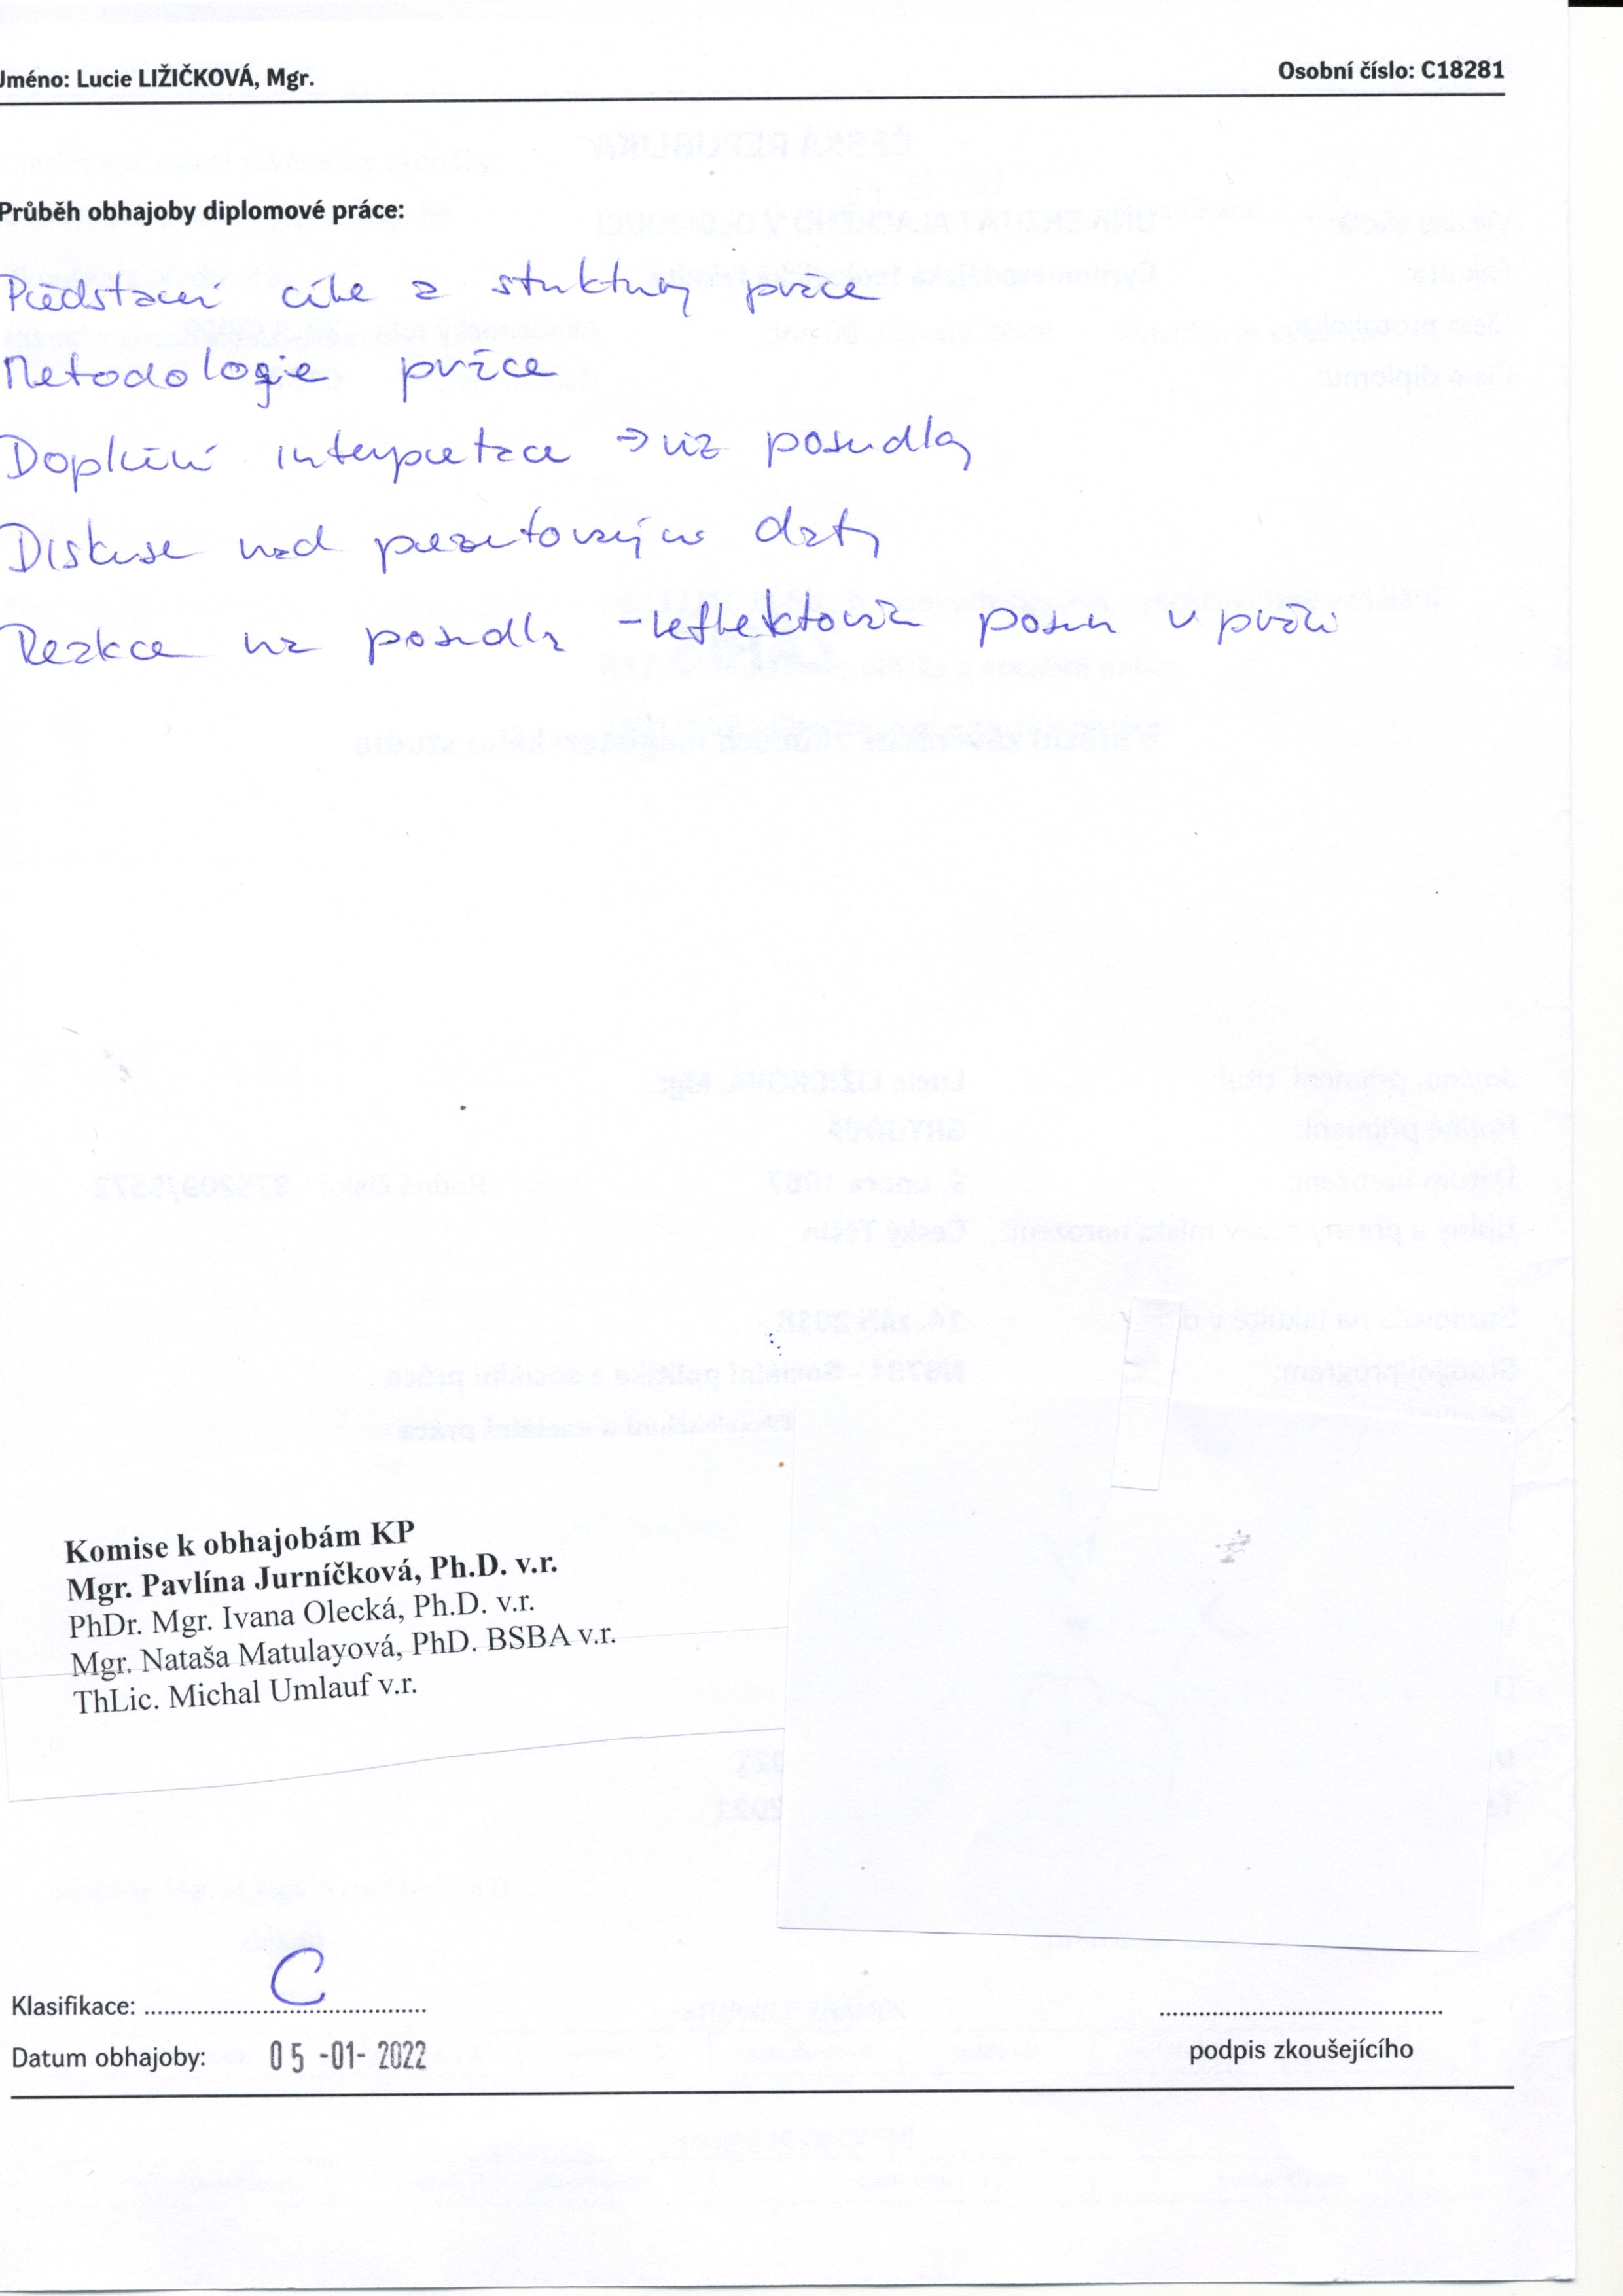 Jméno: Lucie LIŽIČKOVÁ, Mgr.
Osobní číslo: C18281
Průběh obhajoby diplomové práce:
Představení cíle a struktury práce
Metodologie práce
Doplnění interpretace → viz posudky
Diskuse nad prezentovanými daty
Reakce na posudky - reflektován posun v práci
Komise k obhajobám KP
Mgr. Pavlína Jurníčková, Ph.D. v.r.
PhDr. Mgr. Ivana Olecká, Ph.D. v.r.
Mgr. Nataša Matulayová, PhD. BSBA v.r.
ThLic. Michal Umlauf v.r.
Klasifikace: C
Datum obhajoby: 05 -01- 2022
podpis zkoušejícího